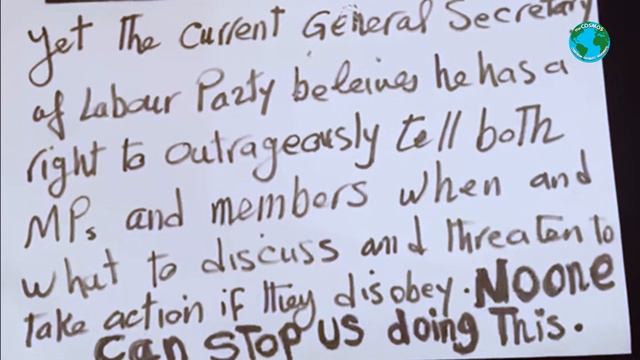 Yet The current General Secretary
of Labour Party beleives he has a
right to outrageously tell both
MPs and members when and
what to discuss and threaten to
take action if they disobey. NO one
can STOP us doing This.
THE COSMOS